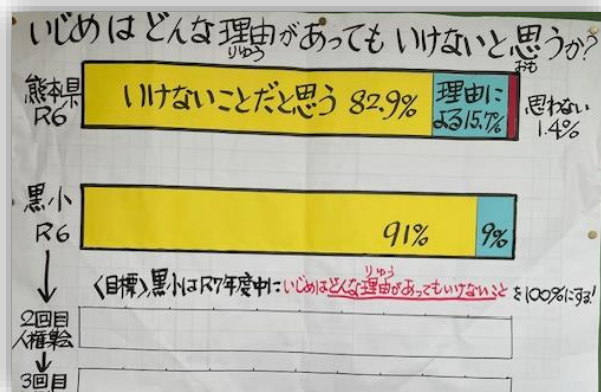 いじめはどんな理由があってもいけないと思うか?
りゆう
おも
熊本県
R6
いけないことだと思う 82.9%
理由に
よる15.7%
思わない
1.4%
黒小
R6
91%
9%
りゆう
〈目標〉黒小はR7年度中にいじめはどんな理由があってもいけないことを100%にする!
2回目
人権集会
3回目